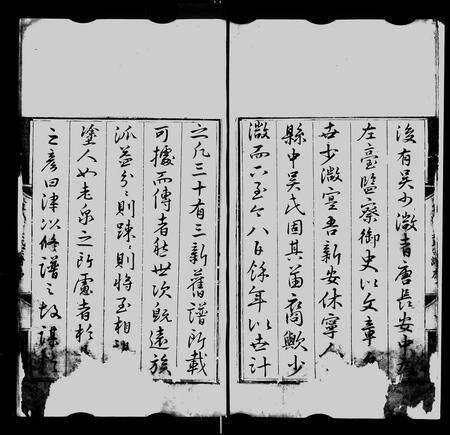 後有吳少微者唐長安中
左臺監察御史以文章
世少微寔吾新安休寧人
縣中吳氏固其苗裔歟少
微而下至今八百餘年以世計
之凡三十有三新舊譜所載
可據而傳者然世次既遠族
派益分分則踈踈則將至相視
塗人如老泉之所慮者於
之彥田津以修譜之故